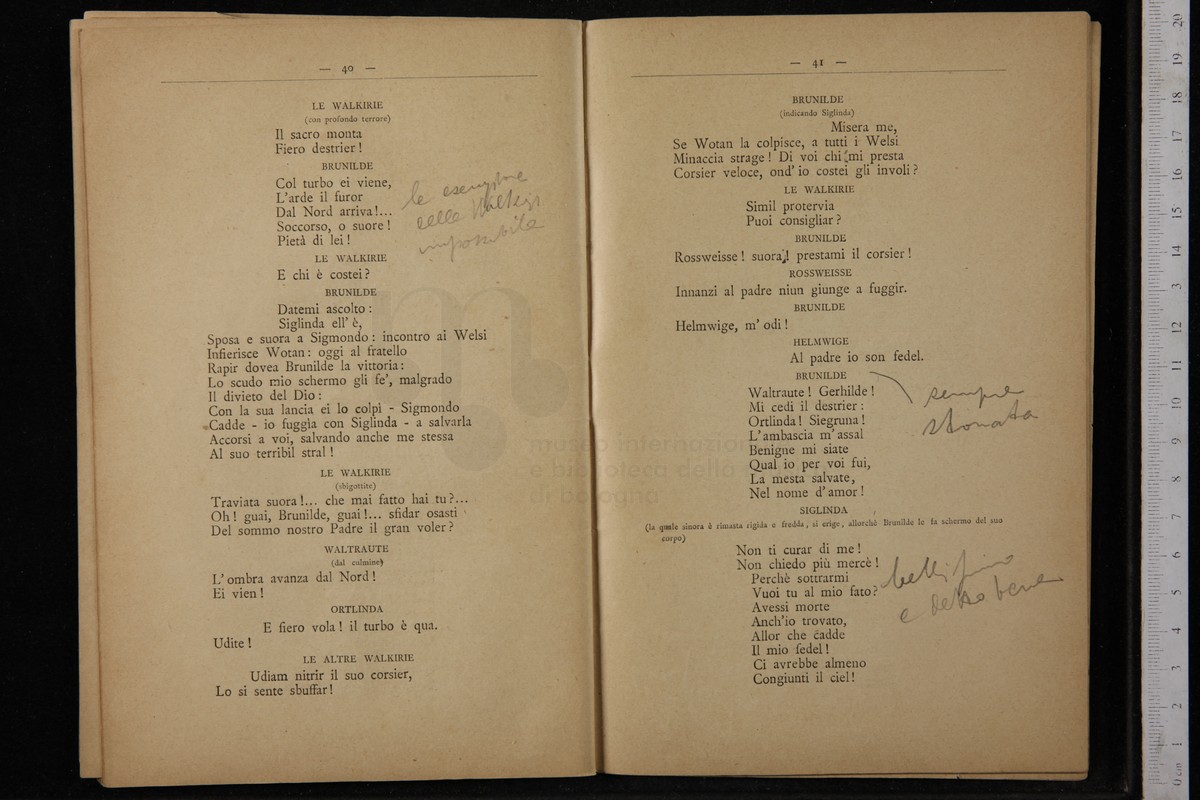 — 40 —
LE WALKIRIE
(con profondo terrore)
Il sacro monta
Fiero destrier !
BRUNILDE
Col turbo ei viene,
L'arde il furor
Dal Nord arriva!...
Soccorso, o suore!
Pietà di lei!
le
delle Walkirie
impossibile
LE WALKIRIE
E chi è costei?
BRUNILDE
Datemi ascolto :
Siglinda ell' è,
Sposa e suora a Sigmondo : incontro ai Welsi
Infierisce Wotan : oggi al fratello
Rapir dovea Brunilde la vittoria :
Lo scudo mio schermo gli fe', malgrado
Il divieto del Dio :
Con la sua lancia ei lo colpì - Sigmondo
Cadde - io fuggìa con Siglinda - a salvarla
Accorsi a voi, salvando anche me stessa
Al suo terribil stral !
LE WALKIRIE
(sbigottite)
Traviata suora!... che mai fatto hai tu?...
Oh! guai, Brunilde, guai!... sfidar osasti
Del sommo nostro Padre il gran voler?
WALTRAUTE
(dal culmine)
L' ombra avanza dal Nord !
Ei vien !
ORTLINDA
E fiero vola! il turbo è qua.
Udite !
LE ALTRE WALKIRIE
Udiam nitrir il suo corsier,
Lo si sente sbuffar!
— 41 —
BRUNILDE
(indicando Siglinda)
Misera me,
Se Wotan la colpisce, a tutti i Welsi
Minaccia strage ! Di voi chi mi presta
Corsier veloce, ond' io costei gli involi?
LE WALKIRIE
Simil protervia
Puoi consigliar ?
BRUNILDE
Rossweisse ! suora! prestami il corsier !
ROSSWEISSE
Innanzi al padre niun giunge a fuggir.
BRUNILDE
Helmwige, m' odi !
HELMWIGE
Al padre io son fedel.
BRUNILDE
Waltraute ! Gerhilde !
Mi cedi il destrier :
Ortlinda ! Siegruna !
L'ambascia m'assal
Benigne mi siate
Qual io per voi fui,
La mesta salvate,
Nel nome d'amor !
sempre
stonata
SIGLINDA
(la quale sinora è rimasta rigida e fredda, si erige, allorchè Brunilde le fa schermo del suo
corpo)
Non ti curar di me !
Non chiedo più mercè !
Perchè sottrarmi
Vuoi tu al mio fato?
Avessi morte
Anch'io trovato,
Allor che cadde
Il mio fedel !
Ci avrebbe almeno
Congiunti il ciel!
bellissimo
e detto bene
museo internazion
e biblioteca della
di bologna